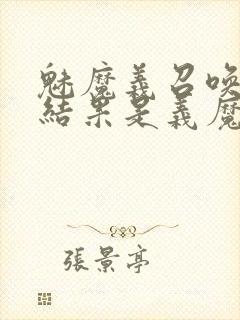 魅魔義召喚
結果是義魔
張景亭